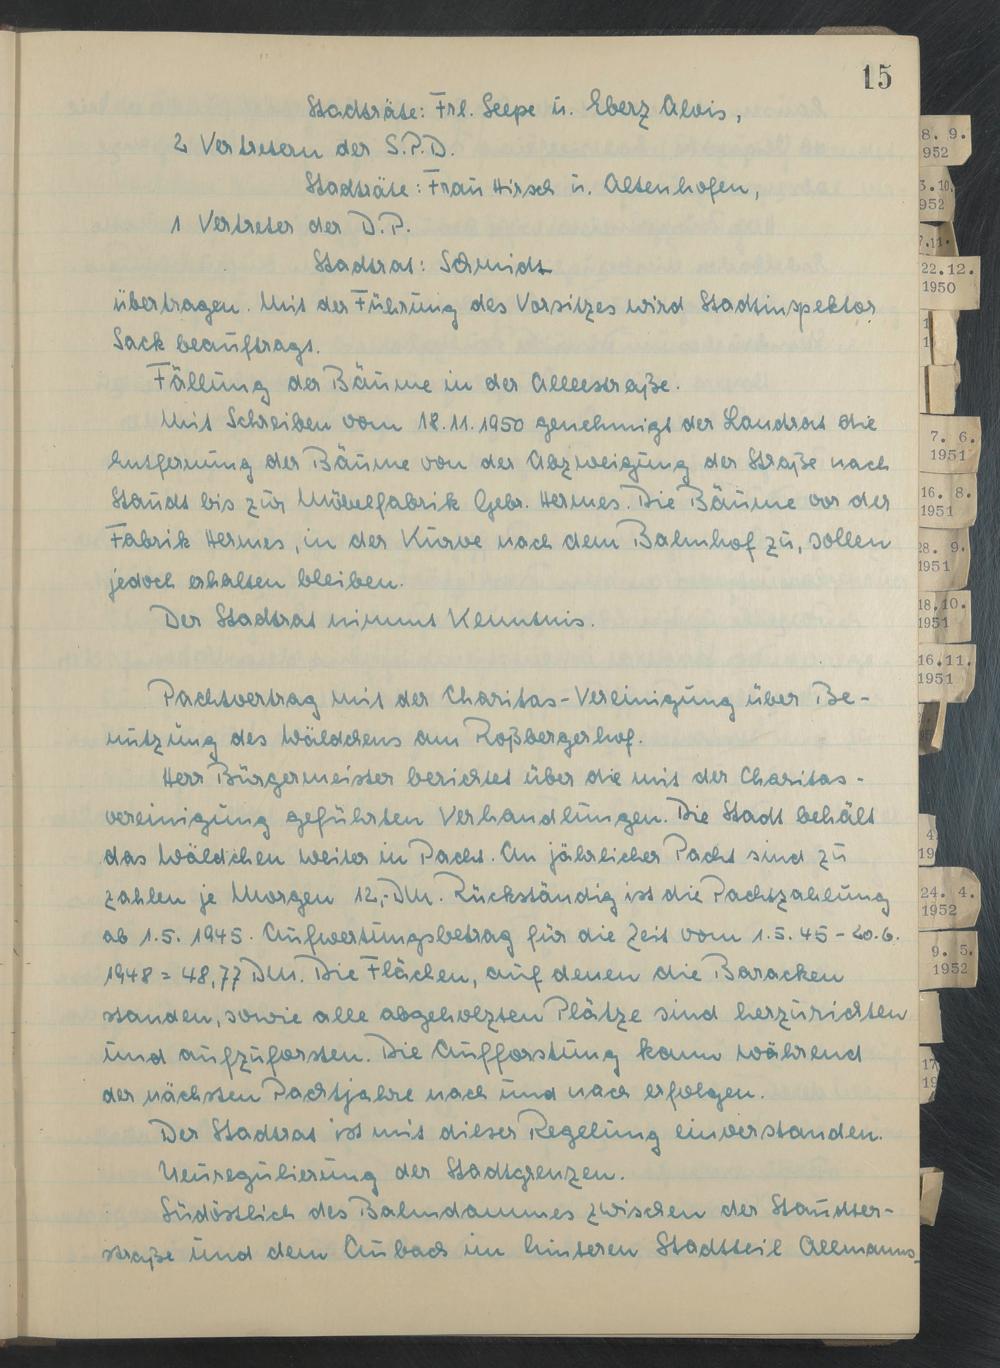 15
Stadträte: Frl. Seepe u. Eberz Alois,
2 Vertretern der S.P.D.
Stadträte: Frau Hirsch u. Altenhofen,
1 Vertreter der D.P.
Stadtrat: Schmidt
übertragen. Mit der Führung des Vorsitzes wird Stadtinspektor
Sack beauftragt.
Fällung der Bäume in der Alleestraße.
Mit Schreiben vom 18.11.1950 genehmigt der Landrat die
Entfernung der Bäume von der Abzweigung der Straße nach
Staudt bis zur Möbelfabrik Gebr. Hermes. Die Bäume vor der
Fabrik Hermes, in der Kurve nach dem Bahnhof zu, sollen
jedoch erhalten bleiben.
Der Stadtrat nimmt Kenntnis.
Pachtvertrag mit der Charitas-Vereinigung über Be-
nutzung des Wäldchens am Roßbergerhof.
Herr Bürgermeister berichtet über die mit der Charitas-
vereinigung geführten Verhandlungen. Die Stadt behält
das Wäldchen weiter in Pacht. An jährlicher Pacht sind zu
zahlen je Morgen 12,- DM. Rückständig ist die Pachtzahlung
ab 1.5.1945. Aufwertungsbetrag für die Zeit vom 1.5.45 - 20.6.
1948 = 48,77 DM. Die Flächen, auf denen die Baracken
standen, sowie alle abgeholzten Plätze sind herzurichten
und aufzuforsten. Die Aufforstung kann während
der nächsten Pachtjahre nach und nach erfolgen.
Der Stadtrat ist mit dieser Regelung einverstanden.
Neuregulierung der Stadtgrenzen.
Südöstlich des Bahndammes zwischen der Staudter-
straße und dem Aubach im hinteren Stadtteil Allmanns-
8. 9.
952
3.10.
952
22.12.
1950
7. 6.
1951
16. 8.
1951
28. 9.
1951
18.10.
1951
16.11.
1951
4
19
24. 4.
1952
9. 5.
1952
17
19